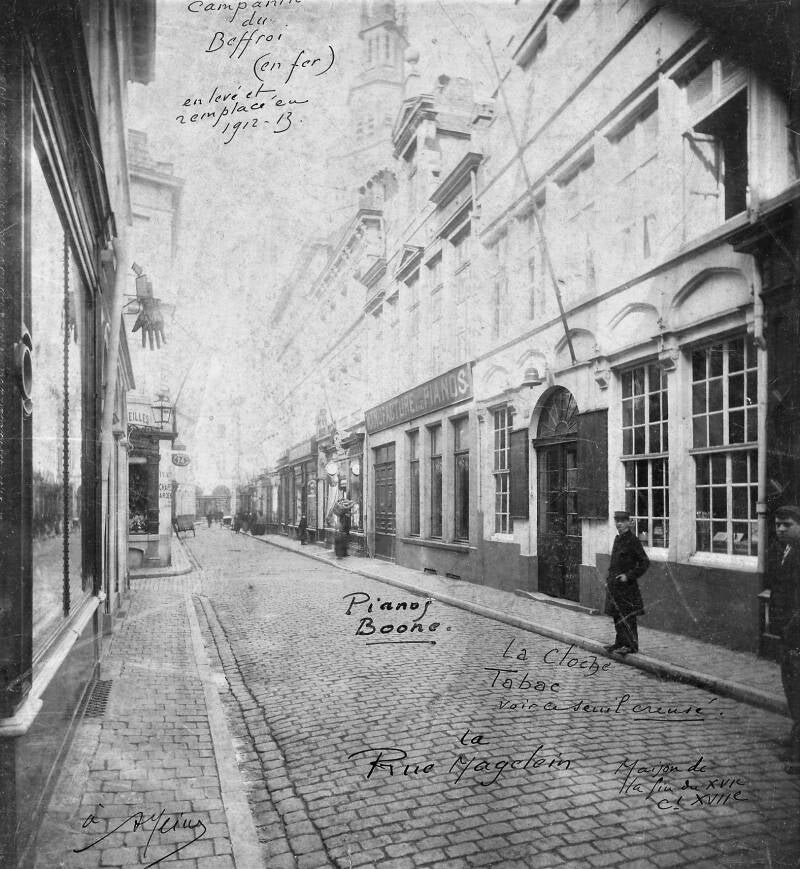 Campanile
du
Beffroi
(en fer)
enlevé et
remplacé en
1912-13.
MANUFACTURE DE PIANOS
EILLES
Pianos
Boone.
La Cloche
Tabac
voir ce seuil creusé.
la
Rue Magelein
Maison de
la fin du XVIe
Ct XVIIe
à